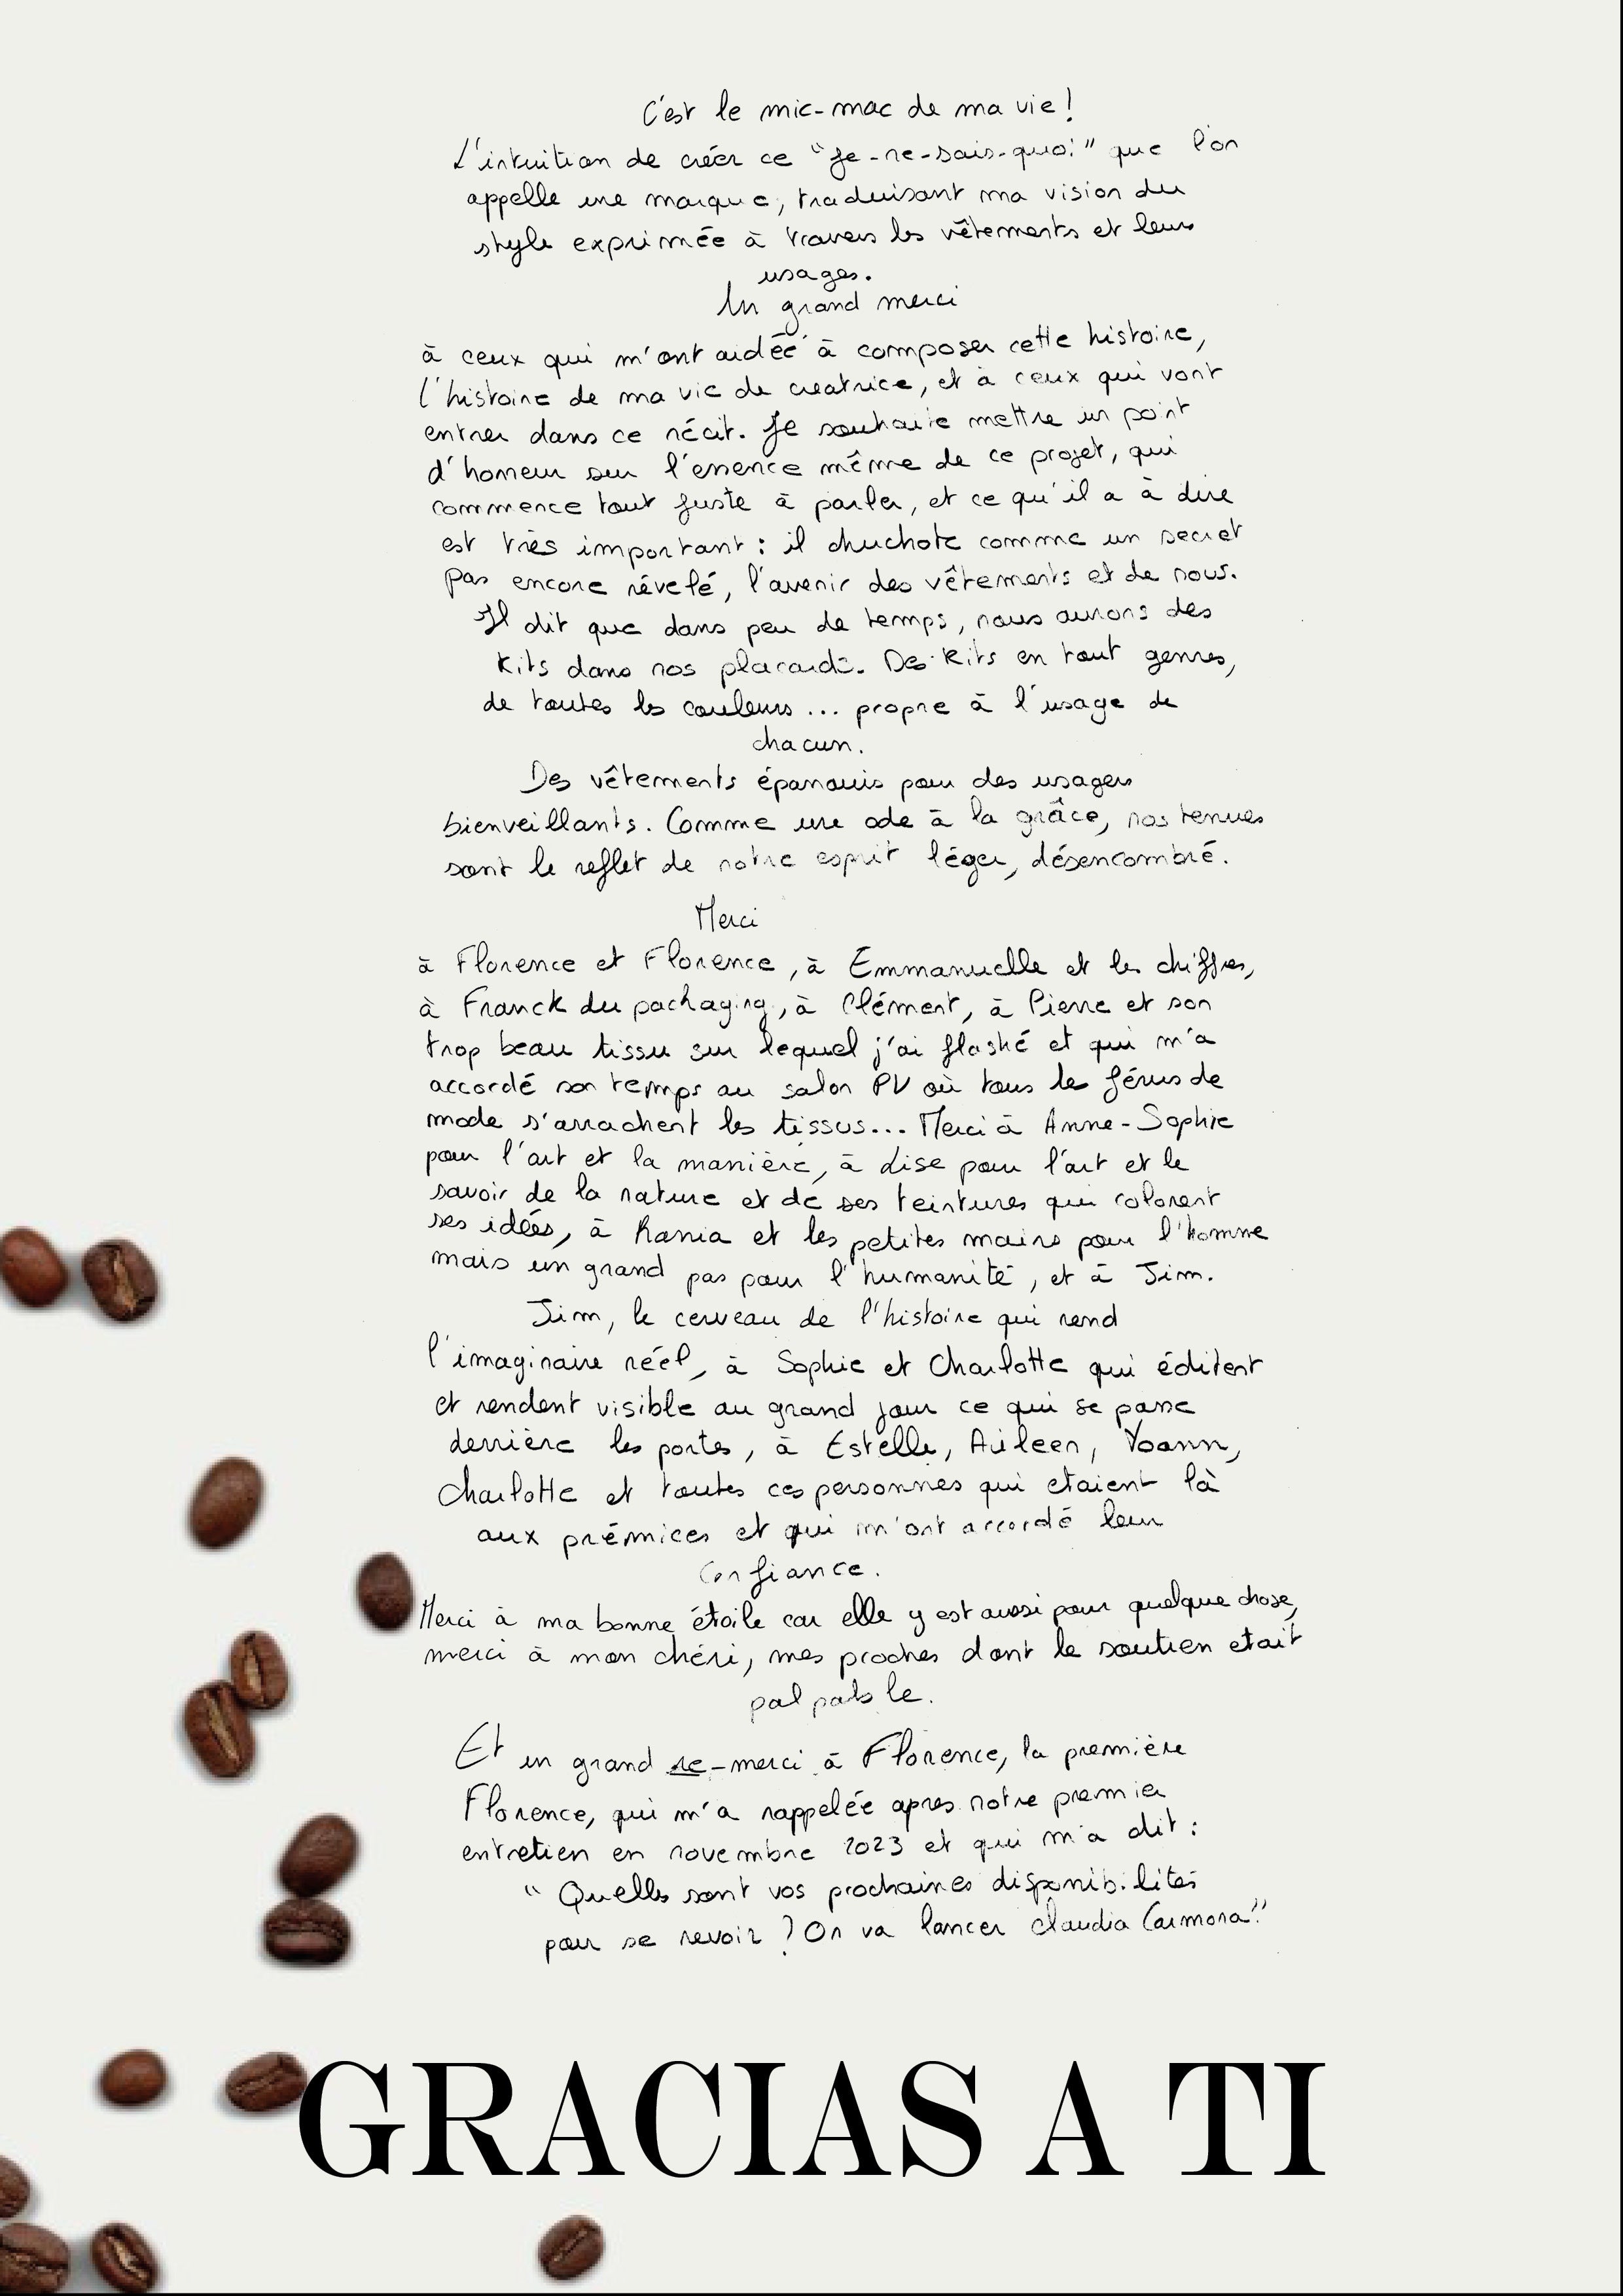 C'est le mic-mac de ma vie !
L'intuition de créer ce "Je-ne-sais-quoi" que l'on
appelle une marque, traduisant ma vision du
style exprimée à travers les vêtements et leurs
usages.
Un grand merci
à ceux qui m'ont aidée à composer cette histoire,
l'histoire de ma vie de creatrice, et à ceux qui vont
entrer dans ce récit. Je souhaite mettre un point
d'honneur sur l'essence même de ce projet, qui
commence tout juste à parler, et ce qu'il a à dire
est très important : il chuchote comme un secret
pas encore révélé, l'avenir des vêtements et de nous.
Il dit que dans peu de temps, nous aurons des
kits dans nos placards. Des kits en tout genres,
de toutes les couleurs ... propre à l'usage de
chacun.
Des vêtements épanouis pour des usagers
bienveillants. Comme une ode à la grâce, nos tenues
sont le reflet de notre esprit léger, désencombré.
Merci
à Florence et Florence, à Emmanuelle et les chiffres,
à Franck du packaging, à Clément, à Pierre et son
trop beau tissu sur lequel j'ai flashé et qui m'a
accordé son temps au salon PV où tous les férus de
mode s'arrachent les tissus... Merci à Anne-Sophie
pour l'art et la manière, à Lise pour l'art et le
savoir de la nature et de ses teintures qui colorent
ses idées, à Rania et les petites mains pour l'homme
mais un grand pas pour l'humanité, et à Jim.
Jim, le cerveau de l'histoire qui rend
l'imaginaire réel, à Sophie et Charlotte qui éditent
et rendent visible au grand jour ce qui se passe
derrière les portes, à Estelle, Aileen, Yoann,
Charlotte et toutes ces personnes qui etaient là
aux prémices et qui m'ont accordé leur
confiance.
Merci à ma bonne étoile car elle y est aussi pour quelque chose,
merci à mon chéri, mes proches dont le soutien etait
palpable.
Et un grand re-merci à Florence, la première
Florence, qui m'a rappelée apres notre premier
entretien en novembre 2023 et qui m'a dit :
" Quelles sont vos prochaines disponibilités
pour se revoir ? On va lancer Claudia Carmona"
GRACIAS A TI